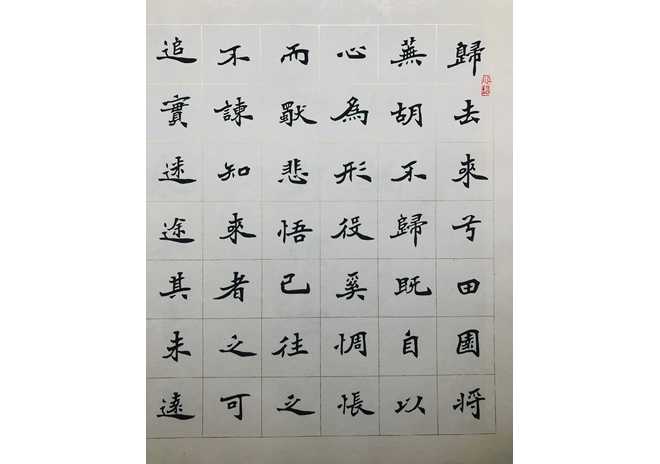 歸去來兮田園將
蕪胡不歸既自以
心為形役奚惆悵
而獨悲悟已往之
不諫知來者之可
追實迷途其未遠